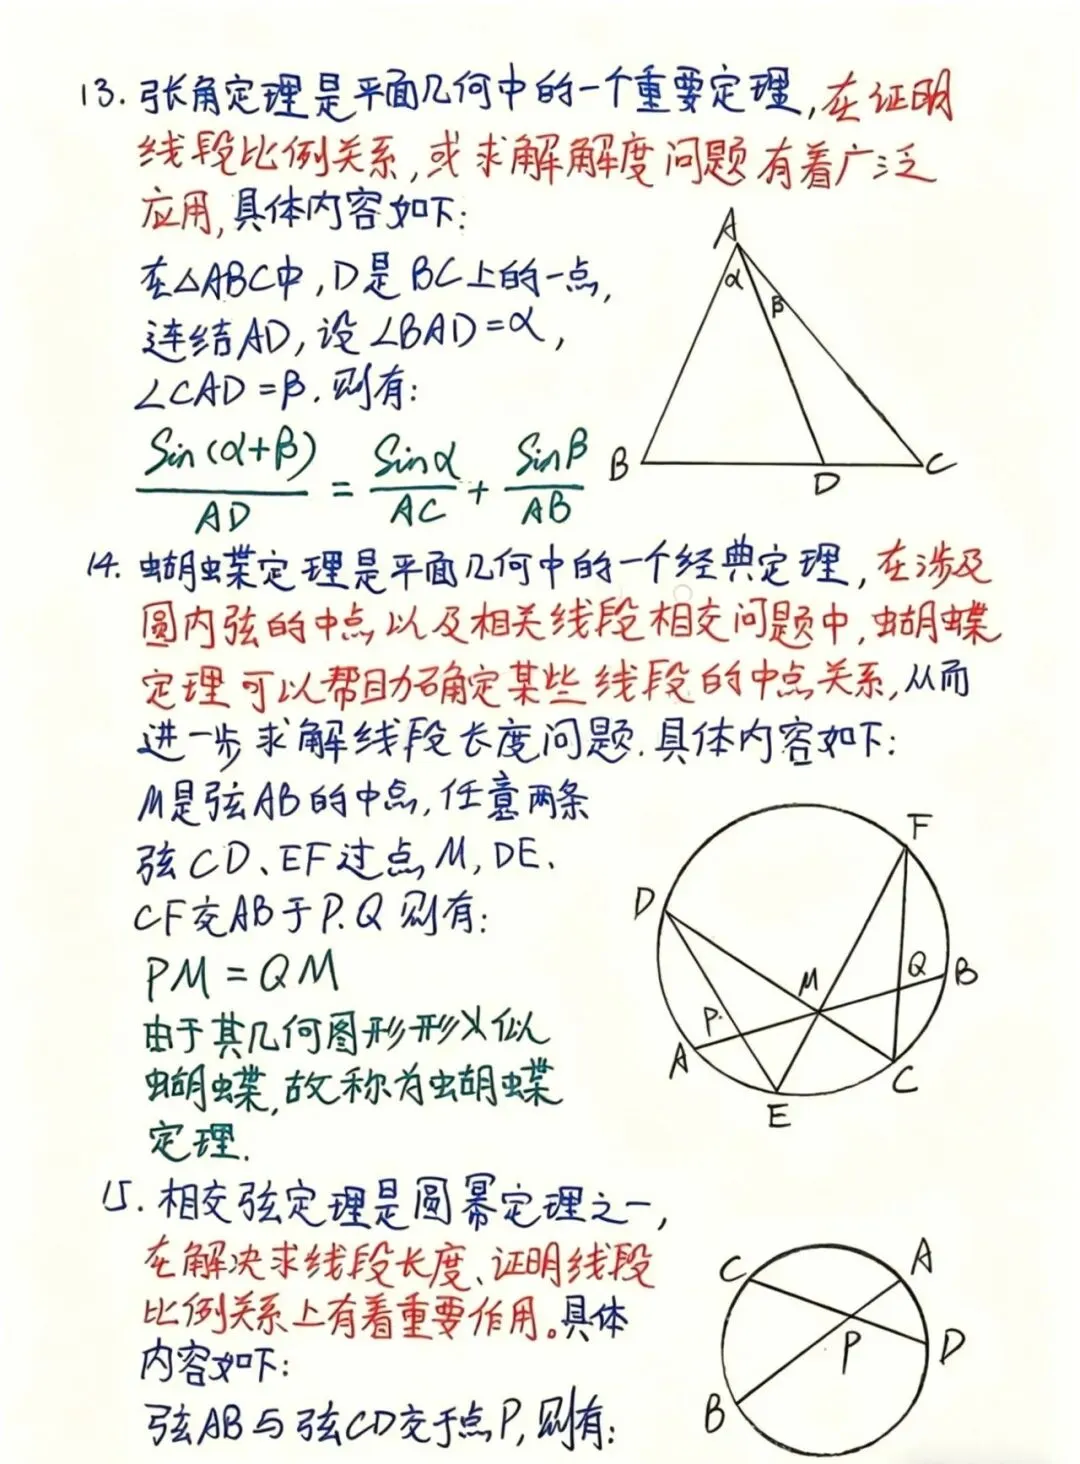 13. 张角定理是平面几何中的一个重要定理,在证明
线段比例关系,或求解解度问题有着广泛
应用,具体内容如下:
A
α
β
B
D
C
在△ABC中,D是BC上的一点,
连结AD,设∠BAD=α,
∠CAD=β.则有:
Sin(α+β)/AD = Sinα/AC + Sinβ/AB
14. 蝴蝶定理是平面几何中的一个经典定理,在涉及
圆内弦的中点以及相关线段相交问题中,蝴蝶
定理可以帮助确定某些线段的中点关系,从而
进一步求解线段长度问题.具体内容如下:
M是弦AB的中点,任意两条
弦CD、EF过点M,DE、
CF交AB于P.Q则有:
PM=QM
由于其几何图形形义似
蝴蝶,故称为蝴蝶
定理.
F
D
M
Q
B
P.
A
C
E
15. 相交弦定理是圆幂定理之一,
在解决求线段长度、证明线段
比例关系上有着重要作用。具体
内容如下:
弦AB与弦CD交于点P,则有:
C
A
P
D
B